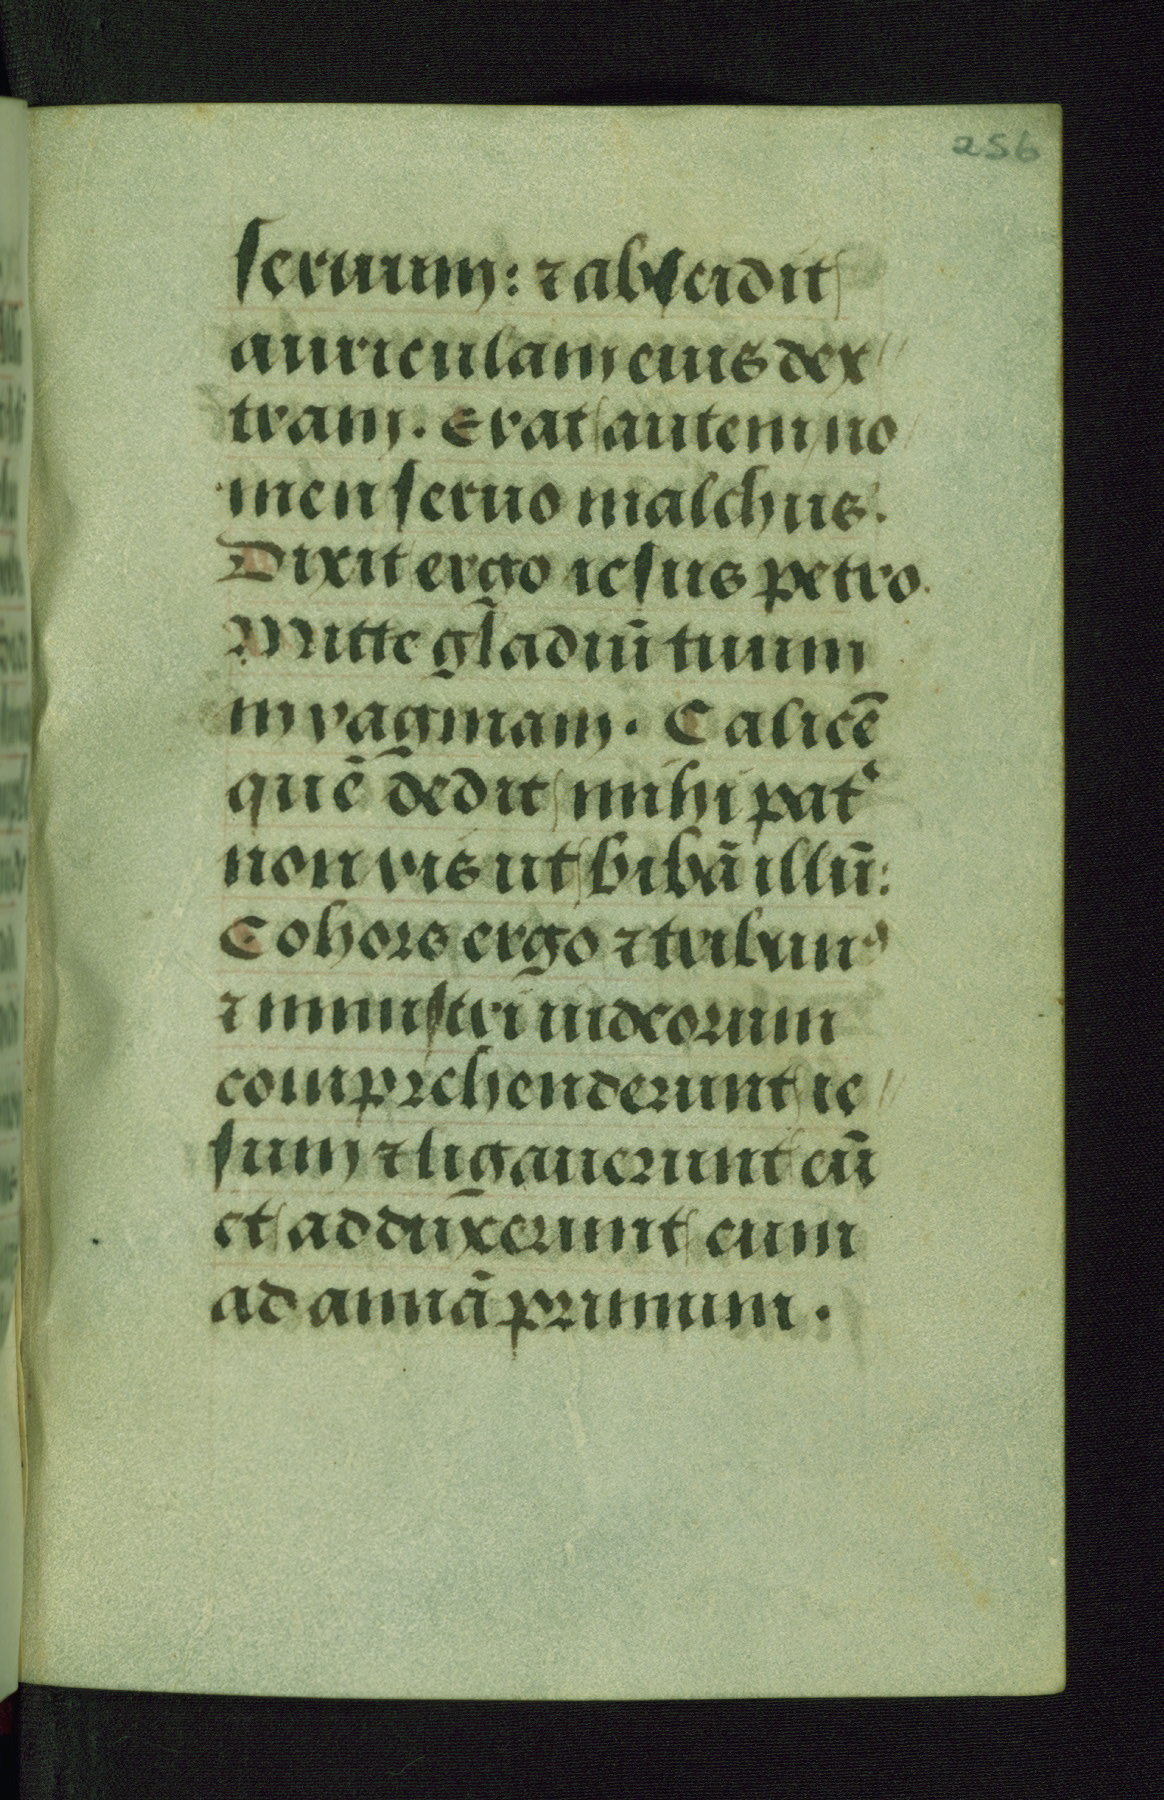 256
seruum: ⁊ abscidit
auriculam eius dex//
tram. Erat autem no
men seruo malchus.
Dixit ergo iesus petro.
Mitte gladiū tuum
in vaginam. Calicē
quē dedit mihi pat᾽
non vis ut bibā illū:
Cohors ergo ⁊ tribunꝰ
⁊ ministri iudeorum
comprehenderunt ie//
sum ⁊ ligauerunt eū
et adduxerunt eum
ad annā primum.